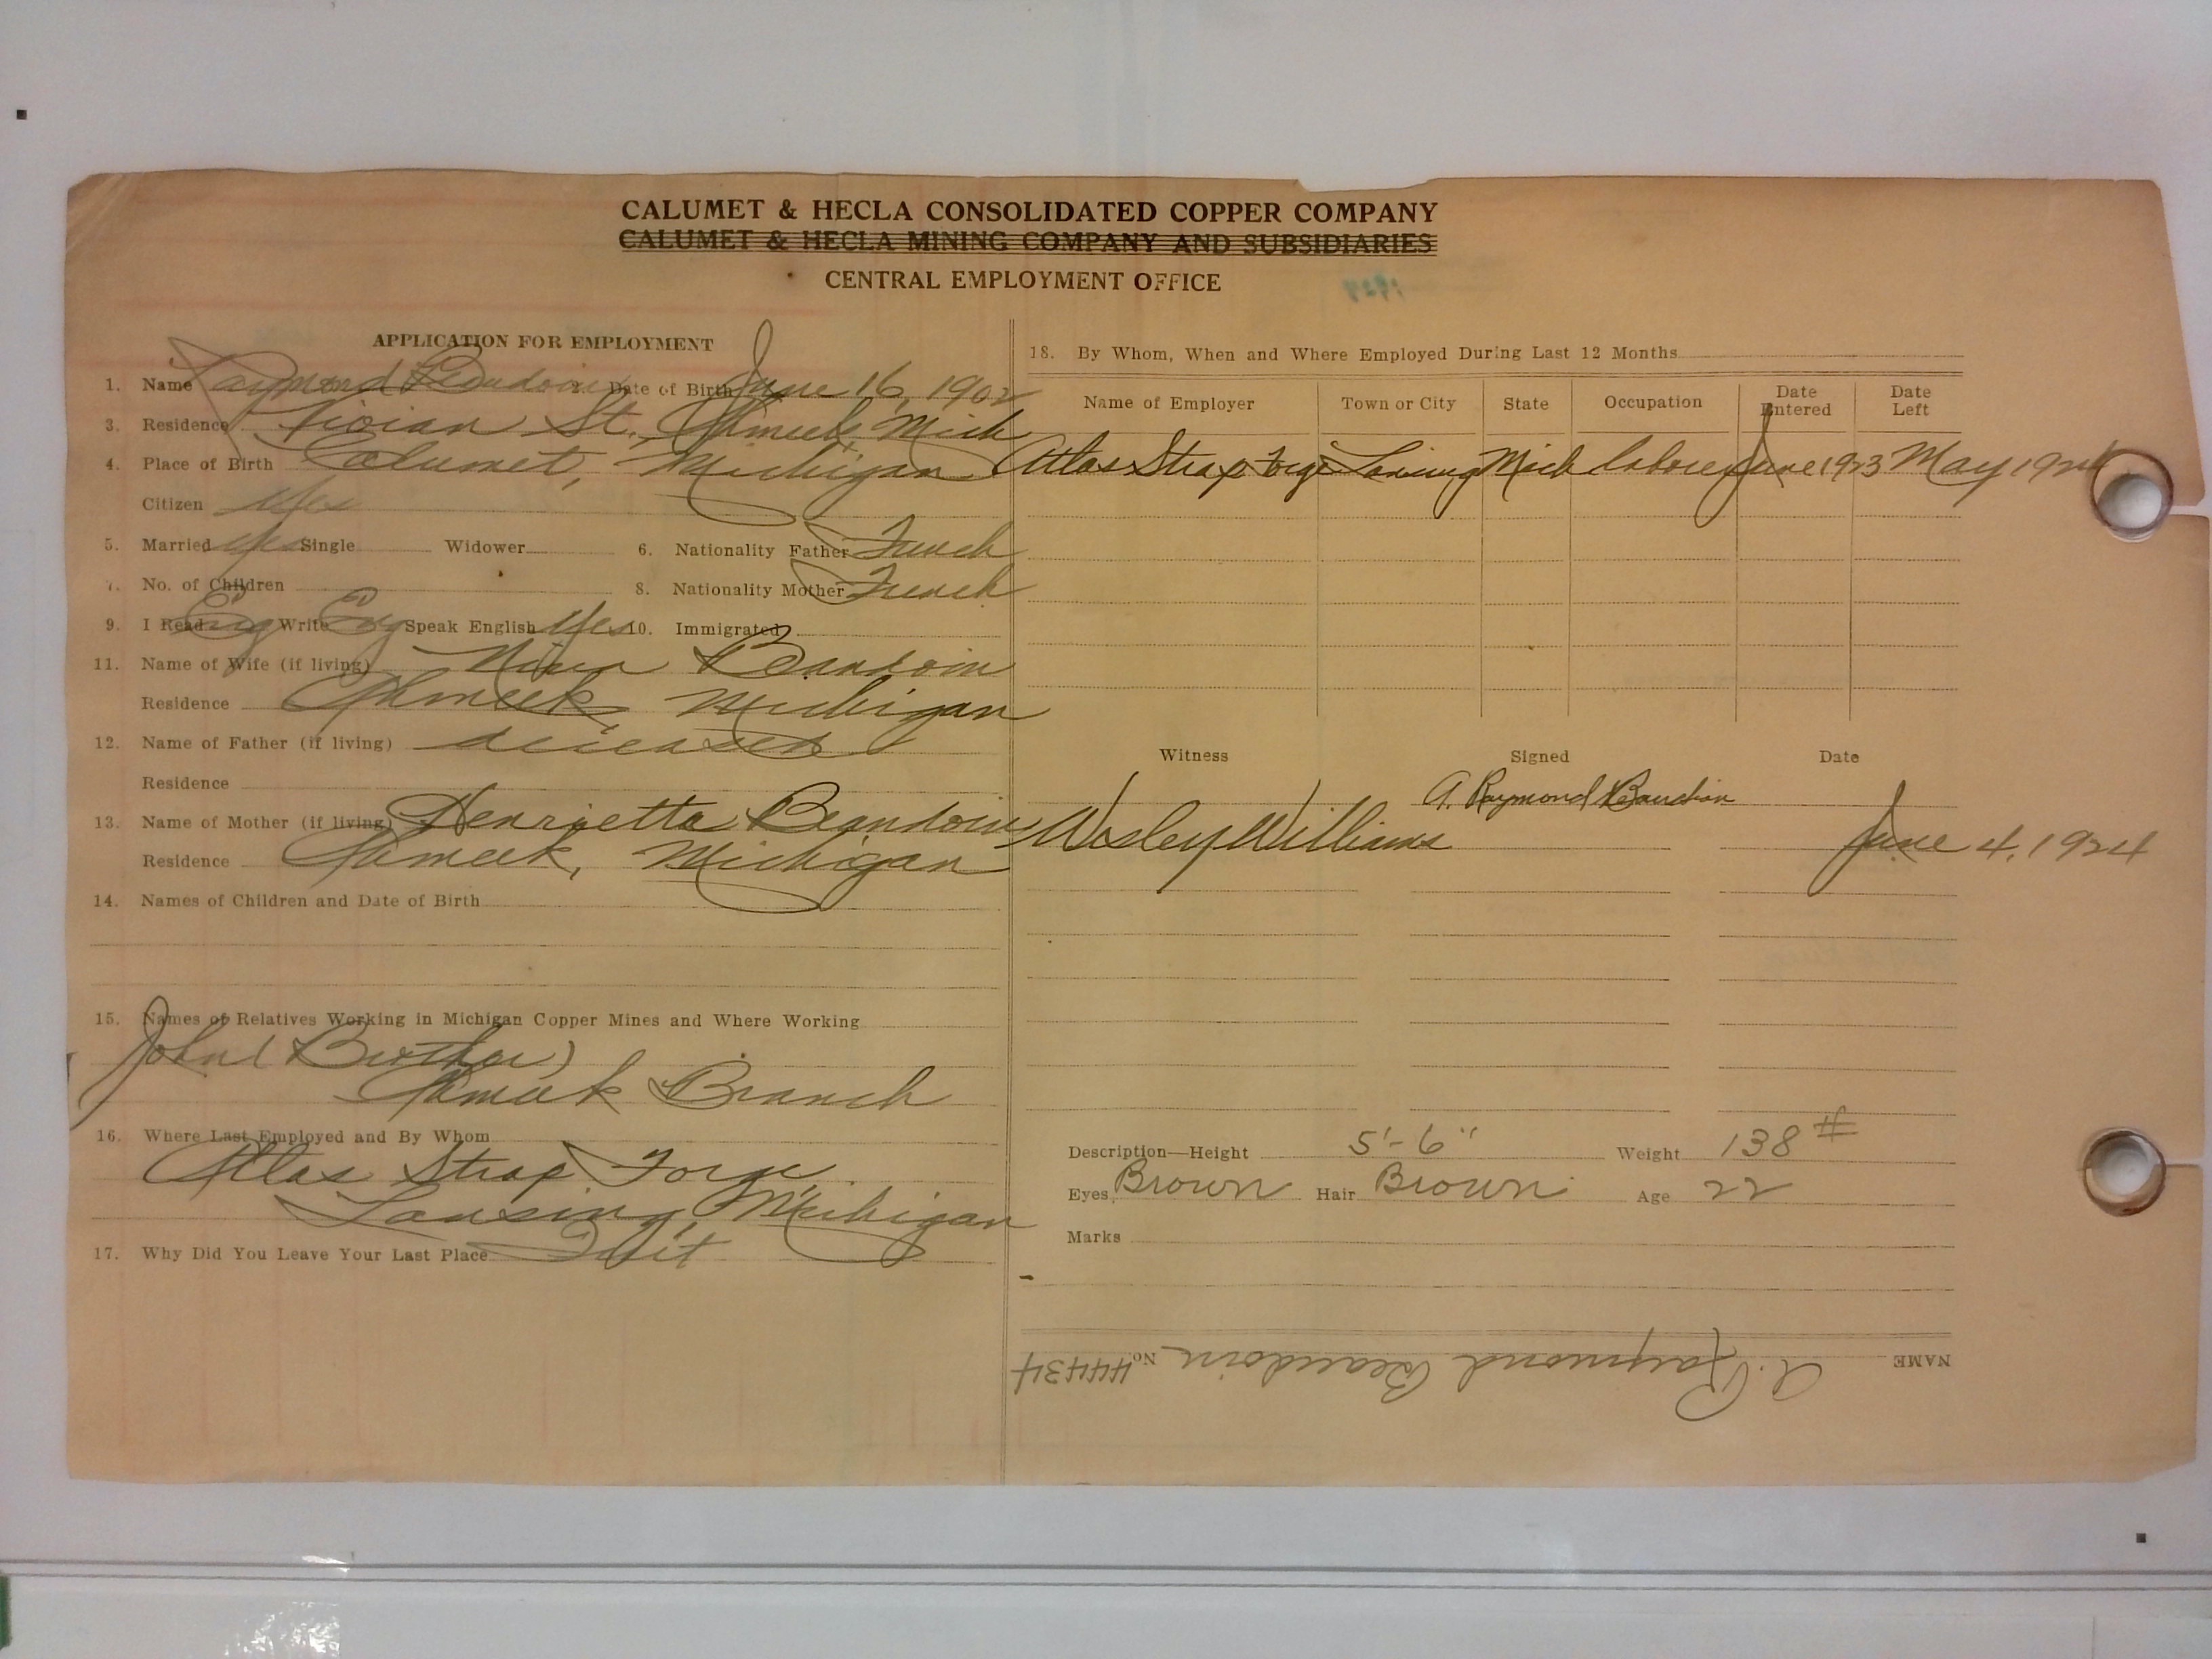 CALUMET & HECLA CONSOLIDATED COPPER COMPANY
CALUMET & HECLA MINING COMPANY AND SUBSIDIARIES
CENTRAL EMPLOYMENT OFFICE
APPLICATION FOR EMPLOYMENT
1. Name Raymond Beaudoin 2. Date of Birth June 16, 1902
3. Residence St. Ahmeek, Mich
4. Place of Birth Calumet, Michigan
Citizen Yes
5. Married yes Single Widower 6. Nationality Father French
7. No. of Children 8. Nationality Mother French
9. I Read Eng Write Eng Speak English Yes 10. Immigrated
11. Name of Wife (if living) Beaudoin
Residence Ahmeek, Michigan
12. Name of Father (if living) deceased
Residence
13. Name of Mother (if living) Henrietta Beaudoin
Residence Ahmeek, Michigan
14. Names of Children and Date of Birth
15. Names of Relatives Working in Michigan Copper Mines and Where Working
John (Brother)
Ahmeek Branch
16. Where Last Employed and By Whom
Atlas Strap Forge
Lansing, Michigan
17. Why Did You Leave Your Last Place Quit
18. By Whom, When and Where Employed During Last 12 Months
Name of Employer Town or City State Occupation Date Entered Date Left
Atlas Strap Forge Lansing Mich laborer June 1923 May 1924
Witness Signed Date
A. Raymond Baudion
Wesley Williams June 4, 1924
Description—Height 5'-6" Weight 138#
Eyes Brown Hair Brown Age 22
Marks
NAME A. Raymond Beaudoin No. 44434